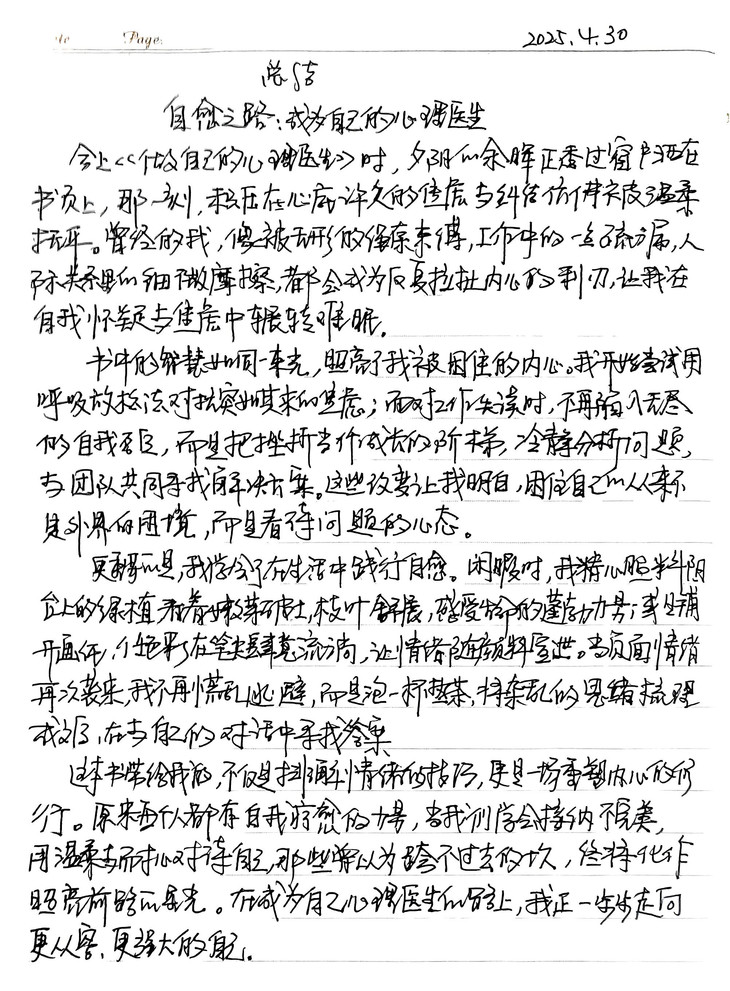 Page.
2025.4.30
总结
自愈之路：成为自己的心理医生
合上《做自己的心理医生》时，夕阳的余晖正透过窗户洒在
书页上，那一刻，积压在心底许久的焦虑与纠结仿佛被温柔
抚平。曾经的我，像被无形的绳索束缚，工作中的一点疏漏，人
际关系里的细微摩擦，都会成为反复拉扯内心的利刃，让我在
自我怀疑与焦虑中辗转难眠。
书中的智慧如同一束光，照亮了我被困住的内心。我开始尝试用
呼吸放松法对抗突如其来的焦虑；面对工作失误时，不再陷入无尽
的自我否定，而是把挫折当作成长的阶梯，冷静分析问题，
与团队共同寻找解决方案。这些改变让我明白，困住自己的从来不
是外界的困境，而是看待问题的心态。
更重要的是，我学会了在生活中践行自愈。闲暇时，我精心照料阳
台上的绿植，看着嫩芽破土，枝叶舒展，感受生命的蓬勃力量；或是铺
开画布，让色彩在笔尖肆意流淌，让情绪随颜料宣泄。当负面情绪
再次袭来，我不再慌乱逃避，而是泡一杯热茶，将杂乱的思绪梳理
成文字，在与自己的对话中寻找答案
这本书带给我的，不仅是排解情绪的技巧，更是一场重塑内心的修
行。原来每个人都有自我疗愈的力量，当我们学会接纳不完美，
用温柔与耐心对待自己，那些曾以为跨不过去的坎，终将化作
照亮前路的星光。在成为自己心理医生的路上，我正一步步走向
更从容、更强大的自己。